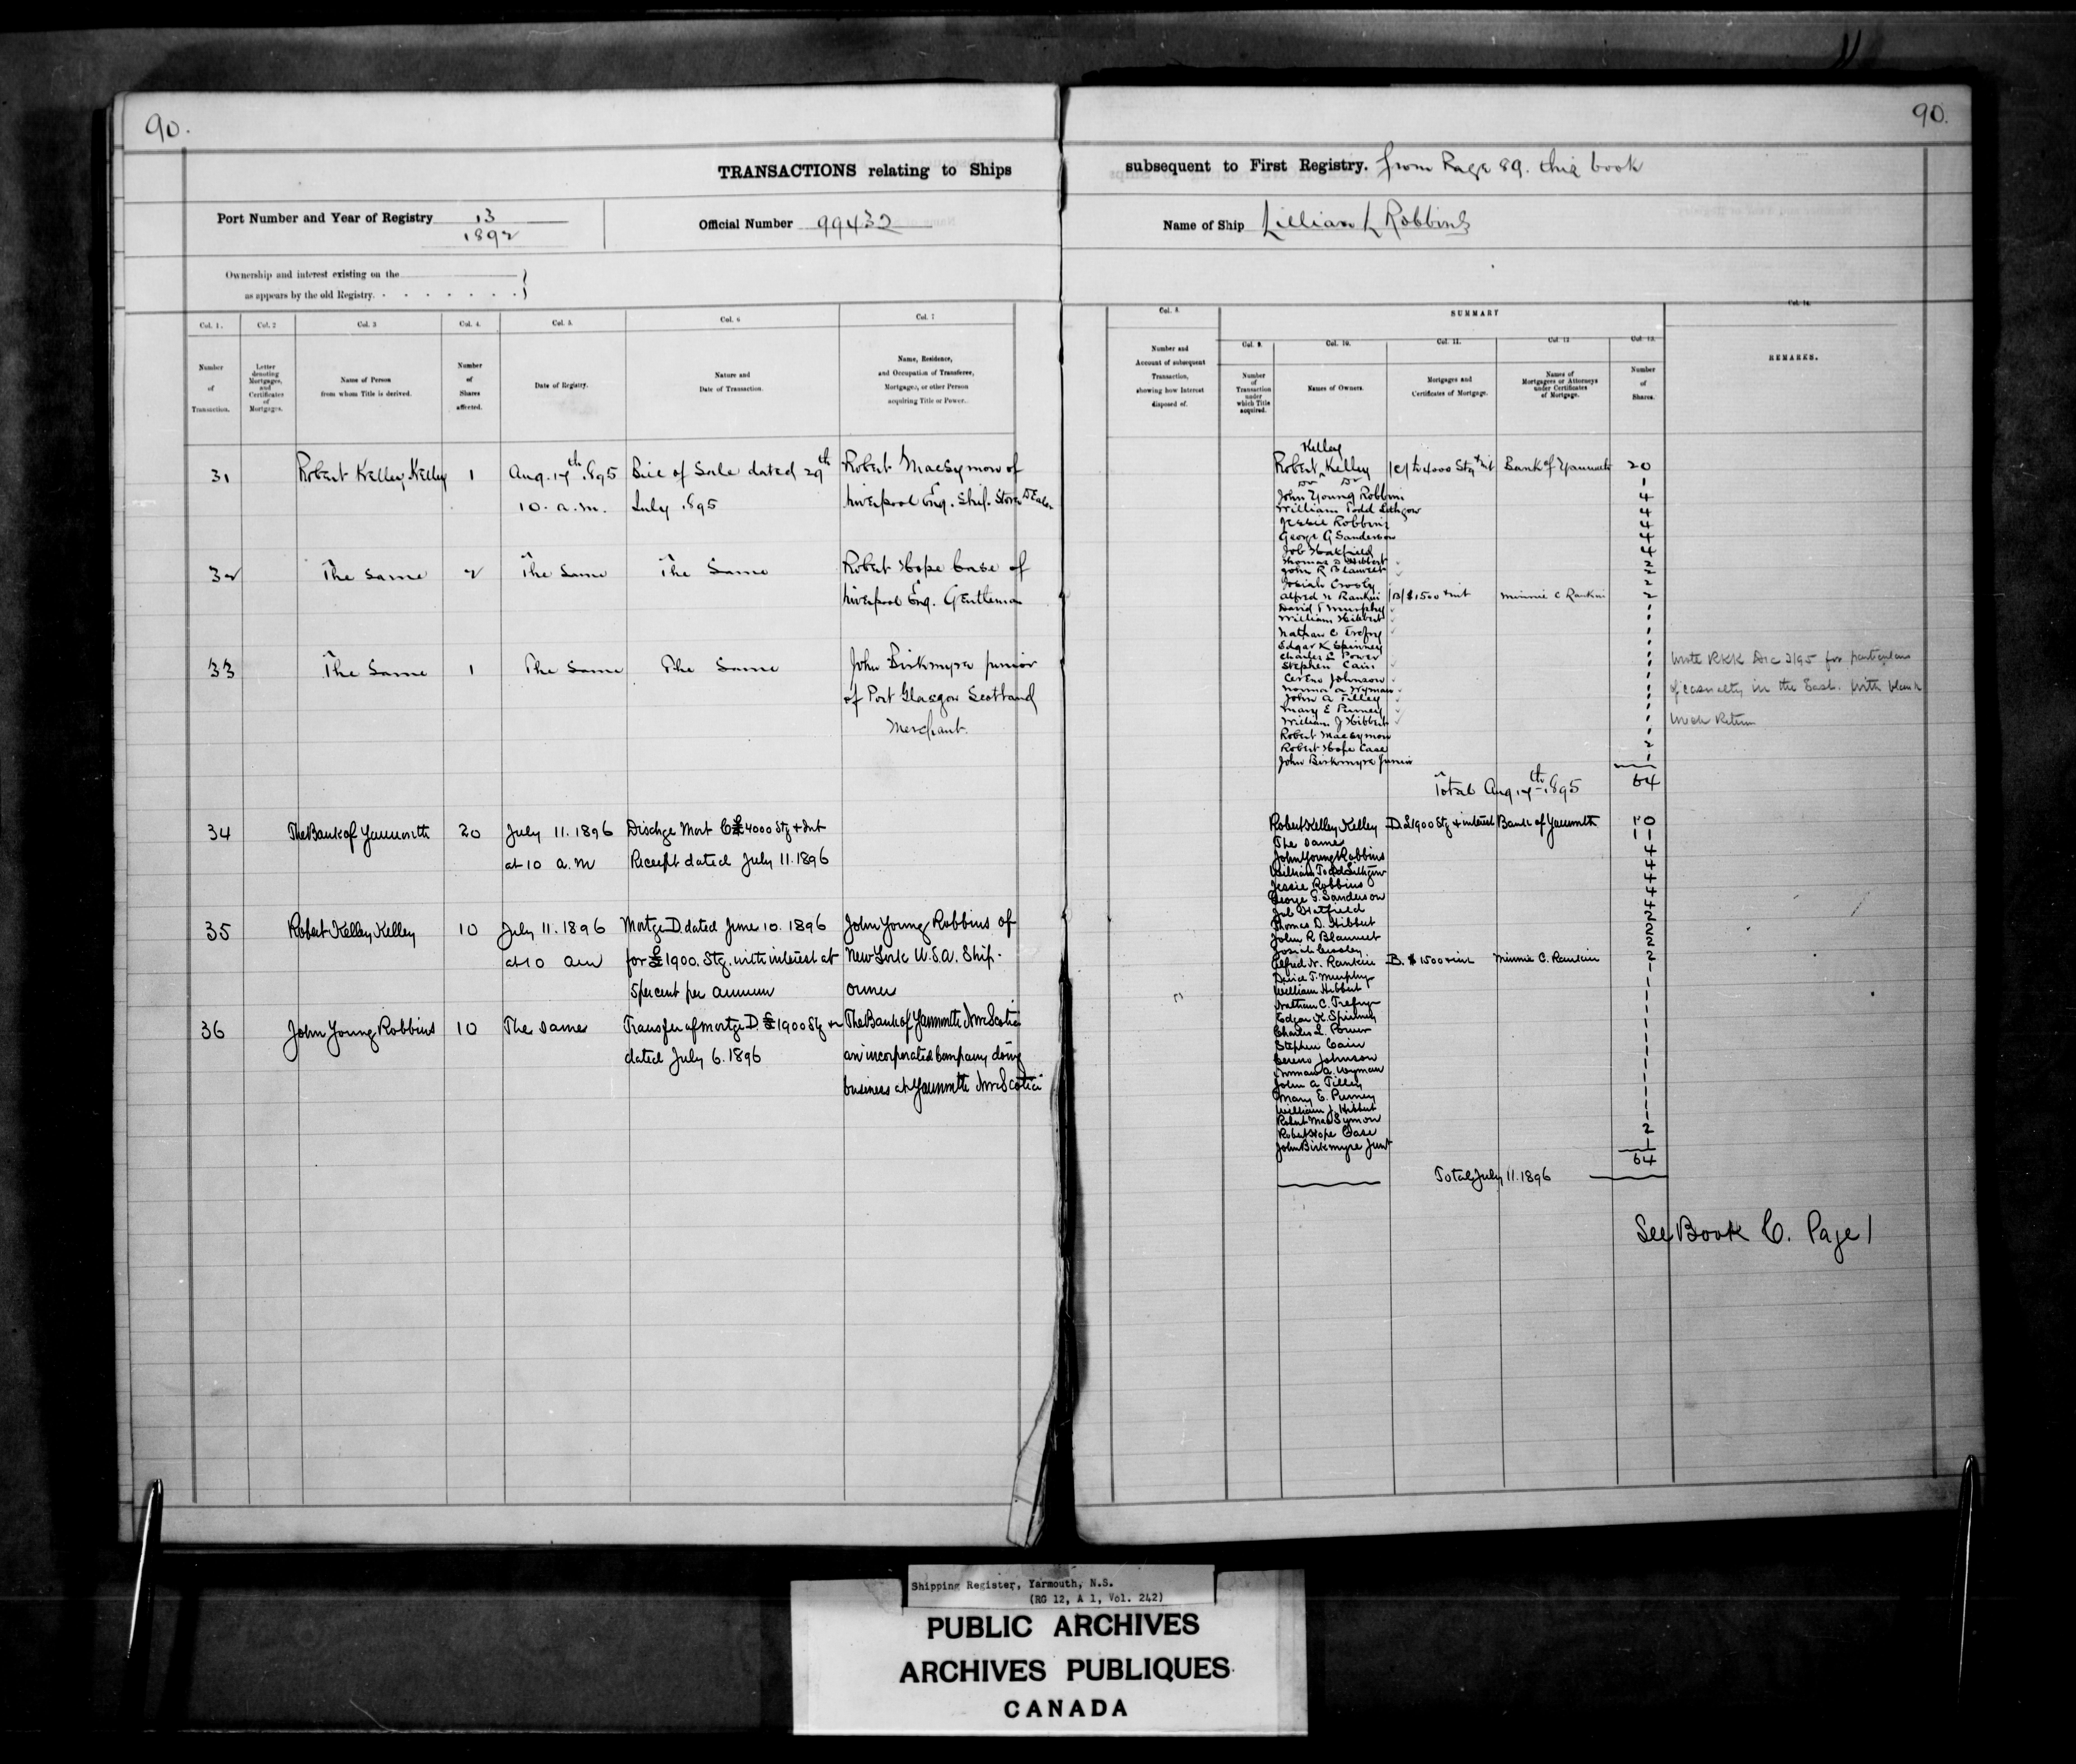 90.
TRANSACTIONS relating to Ships
Port Number and Year of Registry 13
1892
Official Number 99432
Ownership and interest existing on the
as appears by the old Registry.
Col. 1. Col. 2 Col. 3 Col. 4. Col. 5. Col. 6 Col. 7
Number of Transaction.
Letter denoting Mortgages, and Certificates of Mortgages.
Name of Person from whom Title is derived.
Number of Shares affected.
Date of Registry.
Nature and Date of Transaction.
Name, Residence, and Occupation of Transferee, Mortgagee, or other Person acquiring Title or Power.
31 Robert Kelley Kelley 1 Aug. 17th 1895 Bill of Sale dated 29th Robert MacSymon of
10. a.m. July 1895 Liverpool Eng. Ship Store Dealer
32 The same 2 The Same The Same Robert Hope Case of
Liverpool Eng. Gentleman
33 The Same 1 The Same The Same John Birkmyre junior
of Port Glasgow Scotland
Merchant.
34 The Bank of Yarmouth 20 July 11. 1896 Dischge Mort C £4000 Stg + Int
at 10 a.m Receipt dated July 11. 1896
35 Robert Kelley Kelley 10 July 11. 1896 Mortge D. dated June 10. 1896 John Young Robbins of
at 10 am for £1900. Stg. with interest at New York U.S.A. Ship-
5 per cent per annum owner
36 John Young Robbins 10 The same Transfer of mortge D. £1900 Stg + in The Bank of Yarmouth Nova Scotia
dated July 6. 1896 an incorporated Company doing
business at Yarmouth Nova Scotia
90.
subsequent to First Registry. from Page 89. this book
Name of Ship Lillian L Robbins
Col. 8. SUMMARY Col. 14.
Col. 9. Col. 10. Col. 11. Col. 12 Col. 13.
Number and Account of subsequent Transaction, showing how Interest disposed of.
Number of Transaction under which Title acquired.
Names of Owners.
Mortgages and Certificates of Mortgage.
Names of Mortgagees or Attorneys under Certificates of Mortgage.
Number of Shares.
REMARKS.
Kelley
Robert Kelley |C| £4000 Stg + int Bank of Yarmouth 20
Do Do 1
John Young Robbins 4
William Todd Lithgow 4
Jessie Robbins 4
George G Sanderson 4
Job Hatfield 4
Thomas D Hibbert 2
John R Blauvelt 2
Josiah Crosby 2
Alfred N Rankin |B| $1500 + int Minnie C Rankin 2
David T Murphy 1
William Hibbert 1
Nathan C Trefry 1
Edgar K Spinney 1
Charles L Power 1
Stephen Cain 1
Cereno Johnson 1
Norman A Wyman 1
John A Tilley 1
Mary E Purney 1
William J Hibbert 1
Robert MacSymon 1
Robert Hope Case 2
John Birkmyre junior 1
Total Aug. 17th 1895 64
Write RKK Dec 2/95 for particulars
of casualty in the East. With blank
Wreck Return
Robert Kelley Kelley D £1900 Stg + interest Bank of Yarmouth 10
The same 11
John Young Robbins 4
William Todd Lithgow 4
Jessie Robbins 4
George G. Sanderson 4
Job Hatfield 4
Thomas D. Hibbert 2
John R Blauvelt 2
Josiah Crosby 2
Alfred N. Rankin B. $1500 + int Minnie C. Rankin 2
David T. Murphy 1
William Hibbert 1
Nathan C. Trefry 1
Edgar K. Spinney 1
Charles L. Power 1
Stephen Cain 1
Cereno Johnson 1
Norman A. Wyman 1
John A Tilley 1
Mary E. Purney 1
William J. Hibbert 1
Robert MacSymon 1
Robert Hope Case 2
John Birkmyre Junr 1
64
Total July 11. 1896
See Book C. Page 1
Shipping Register, Yarmouth, N.S.
(RG 12, A 1, Vol. 242)
PUBLIC ARCHIVES
ARCHIVES PUBLIQUES
CANADA